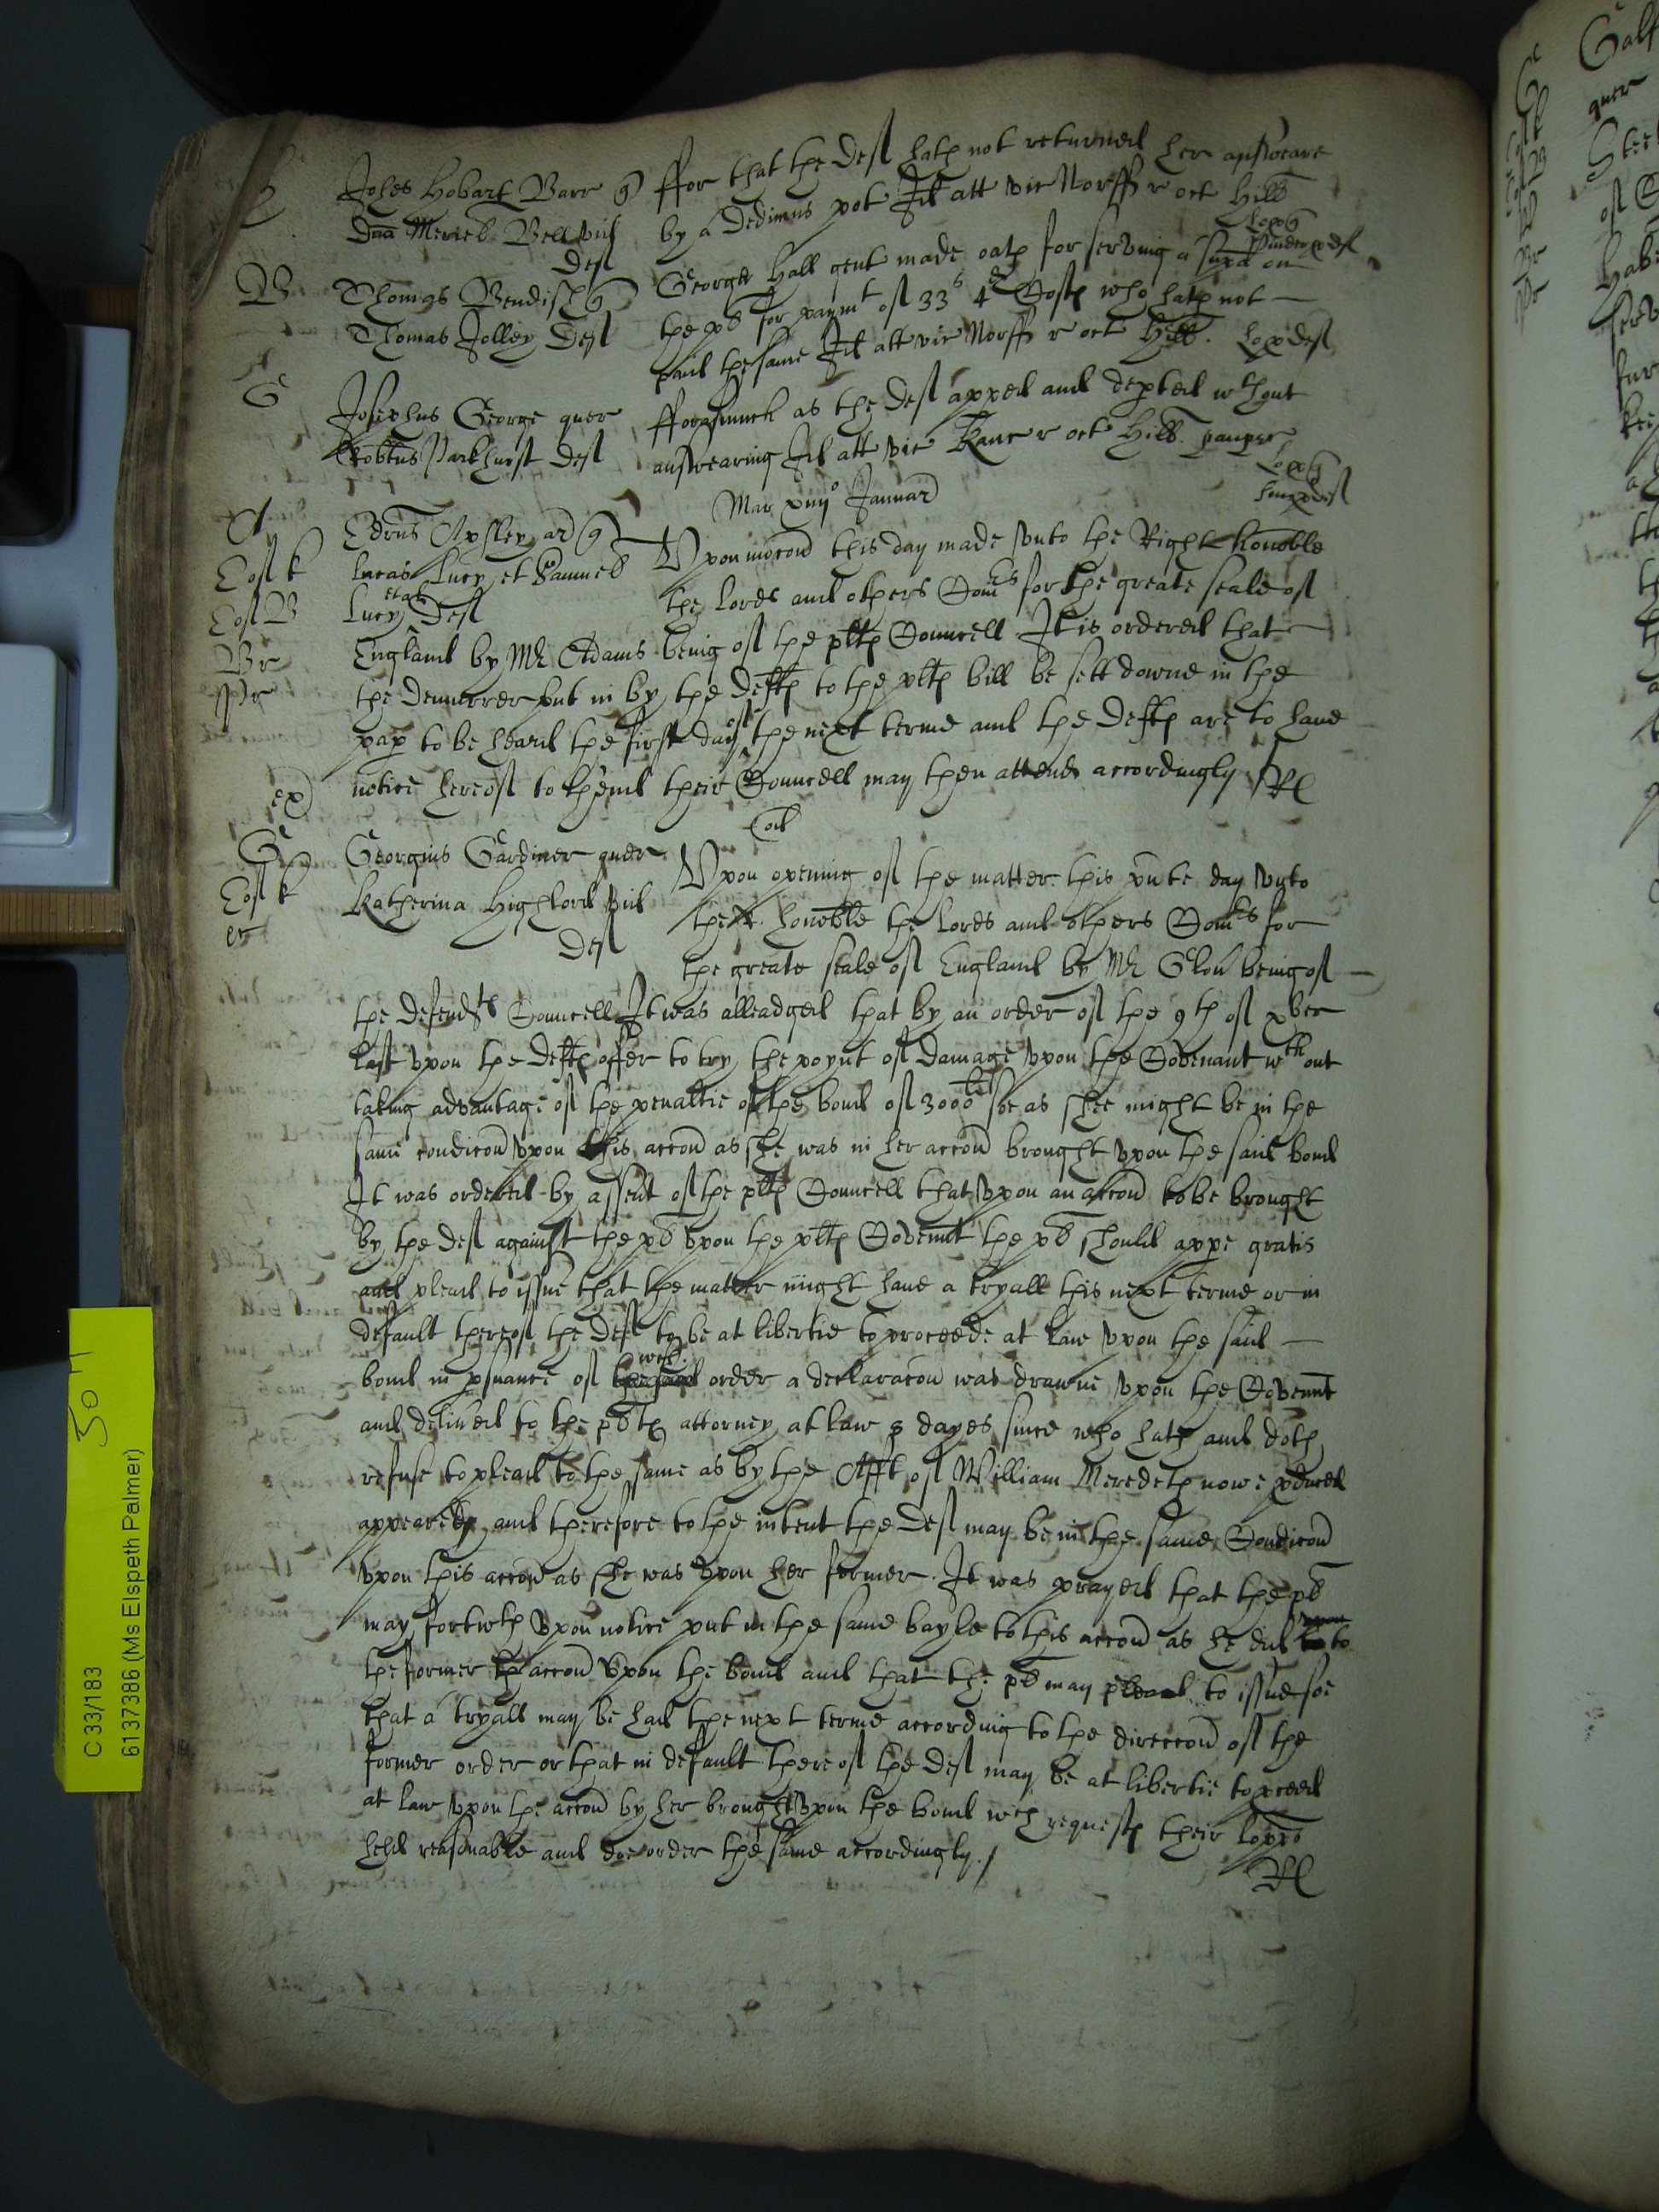 Johes Hobart Barr q ffor that the Def hath not returned her answeare
Dna Meriel Bell vid by a Dedimus pot Id att vic Norff r oct Hill
Def
B Thomas Bendish q George Hall gent made oath for serving a supa on
Thomas Jolley Def the pl for paymt of 33s 4d Costs who hath not
paid the same Id att vic Norff r oct Hill.
G
Josephus George quer fforasmuch as the Def apped and depted wthout
Robtus Parkhurst Def answearing Id att vic Kanc r oct Hill. pauper
Mar xiiijo Januar
A Edrus Apsley ar q Upon mocon this day made unto the Right honoble
Lucas Lucy et Samuel the Lords and others Comrs for the greate seale of
Lucy et al Def
England by Mr Adams being of the plts Councell It is ordered that
the demurrer put in by the Defts to the plts bill be sett downe in the
pap to be heard the first day of the next terme and the Defts are to have
notice hereof to thend their Councell may then attend accordingly Rl
ex
G Georgius Gardiner quer Eod
Upon opening of the matter this pnte day unto
Katherina Highlord vid the R. honoble the Lords and others Comrs for
Def the greate seale of England by Mr Glov being of
the defendts Councell It was alleadged that by an order of the 9th of xber
last upon the Defts offer to try the poynt of Damage upon the Covenant wthout
taking advantage of the penaltie of the bond of 3000li soe as shee might be in the
same condicon upon this accon as she was in her accon brought upon the said bond
It was ordered by assent of the plts Councell that upon an accon to be brought
by the Def against the pl upon the plts Covennt the pl should appe gratis
and plead to issue that the matter might have a tryall this next terme or in
default thereof the Def to be at libertie to proceede at law upon the said
bond in psuance of wch order a declaracon was drawne upon the Covennt
and delived to the plts attorney at law 8 dayes since who hath and doth
refuse to plead to the same as by the Afft of William Meredeth nowe pduced
appeareth and therefore to the intent the Def may be in the same Condicon
upon this accon as she was upon her former. It was prayed that the pl
may fortwth upon notice put in the same bayle to this accon as he did to
the former accon upon the bond and that the pl may plead to issue soe
that a tryall may be had the next terme according to the direccon of the
former order or that in default thereof the Def may be at libertie to pceed
at law upon the accon by her brought upon the bond wch request their Lopps
held reasonable and doe order the same accordingly./
Rl
30 H
C 33/183
6137386 (Ms Elspeth Palmer)